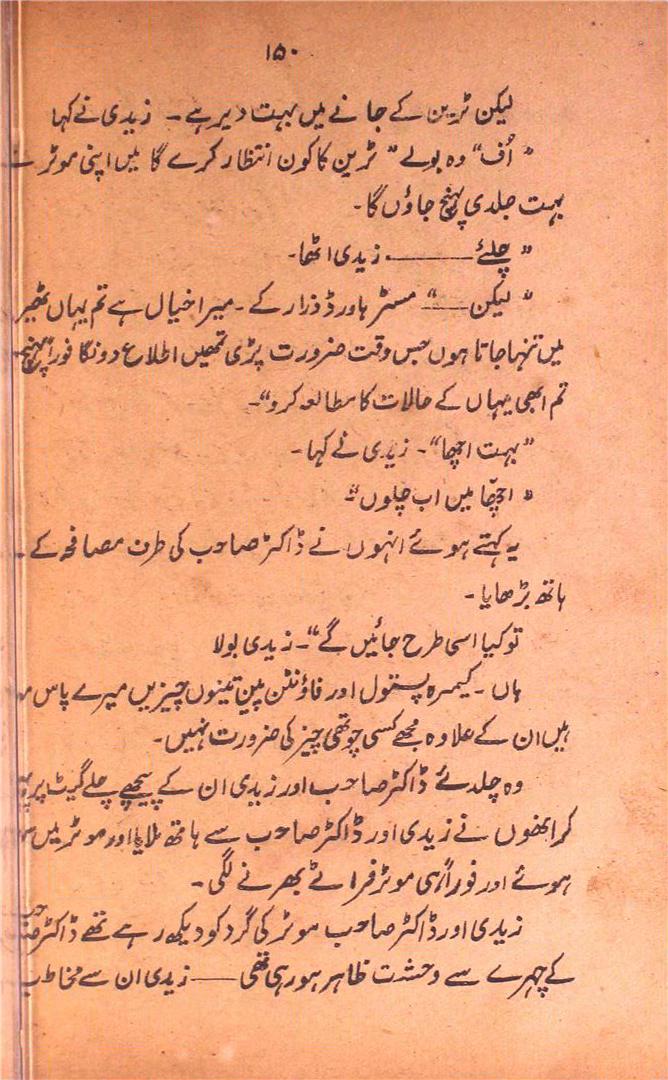 ۱۵۰
لیکن ٹرین کے جانے میں بہت دیر ہے ۔ زیدی نے کہا
" اُف" وہ بولے " ٹرین کا کون انتظار کرے گا میں اپنی موٹر
بہت جلدی پہنچ جاؤں گا۔
" چلئے ——— زیدی اٹھا۔
" لیکن ——" مسٹر ہاورڈ ذرا رکے ۔ میرا خیال ہے تم یہاں ٹھیر
میں تنہا جاتا ہوں جس وقت ضرورت پڑی تمھیں اطلاع دونگا فوراً پہنچ
تم ابھی یہاں کے حالات کا مطالعہ کرو"۔
"بہت اچھا"۔ زیدی نے کہا۔
" اچھّا میں اب چلوں"
یہ کہتے ہوئے انہوں نے ڈاکٹر صاحب کی طرف مصافحہ کے
ہاتھ بڑھایا ۔
تو کیا اسی طرح جائیں گے"۔ زیدی بولا
ہاں ۔ کیمرہ پستول اور فاؤنٹن پین تینوں چیزیں میرے پاس
ہیں ان کے علاوہ مجھے کسی چوتھی چیز کی ضرورت نہیں۔
وہ چلدئے ڈاکٹر صاحب اور زیدی ان کے پیچھے چلے گیٹ پر
کر انھوں نے زیدی اور ڈاکٹر صاحب سے ہاتھ ملایا اور موٹر میں
ہوئے اور فوراً ہی موٹر فراٹے بھرنے لگی ۔
زیدی اور ڈاکٹر صاحب موٹر کی گرد کو دیکھ رہے تھے ڈاکٹر صاحب
کے چہرے سے وحشت ظاہر ہو رہی تھی —— زیدی ان سے مخاطب